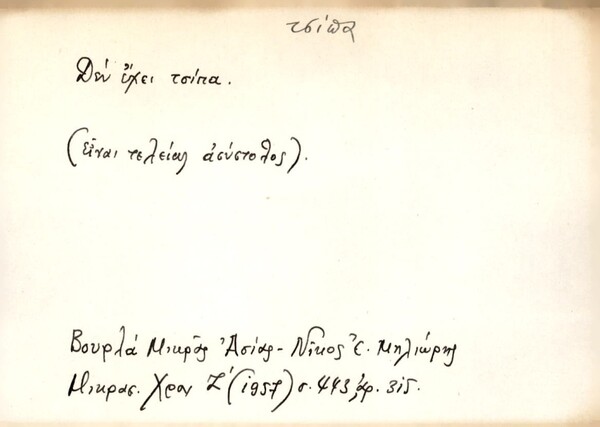 τσίπα
Δέν ἔχει τσίπα.
(Εἶναι τελείως ἀσύστολος).
Βουρλά Μικρᾶς Ἀσίας - Νῖκος Ἐ. Μηλιώρης
Μικρασ. Χρον Ζ΄ (1957) σ. 443, ἀρ. 315.